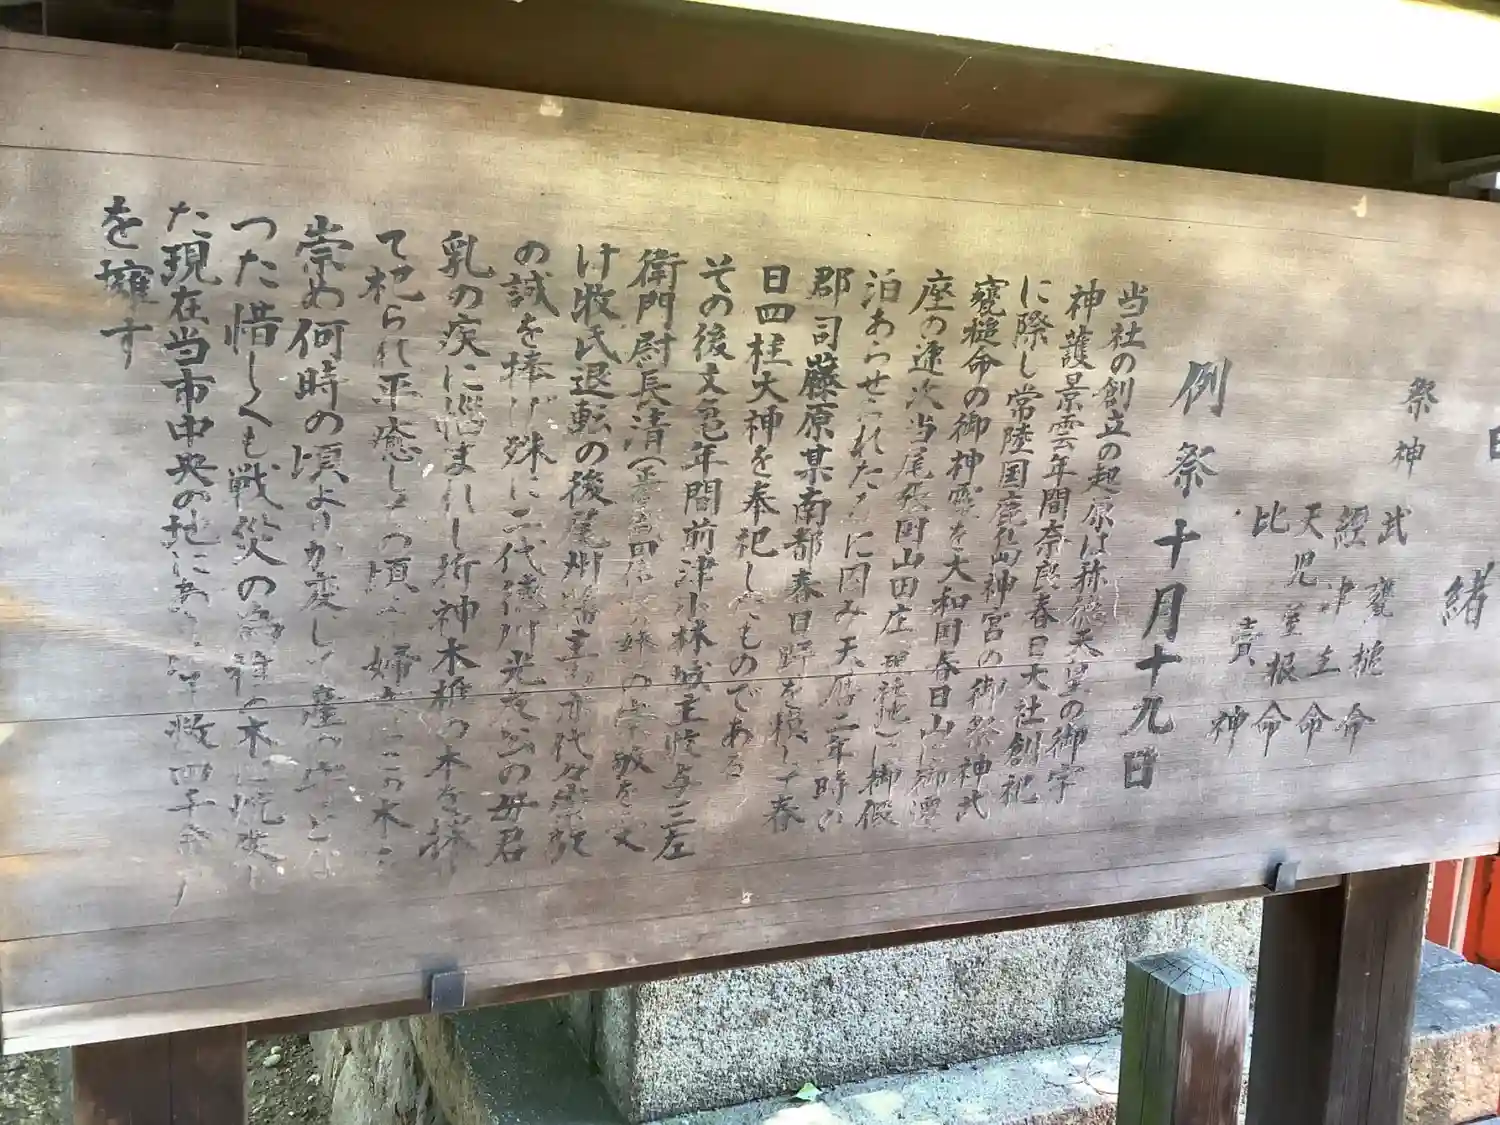 由緒
祭神
武甕槌命
経津主命
天児屋根命
比賣神
例祭 十月十九日
当社の創立の起原は称徳天皇の御宇
神護景雲年間奈良春日大社創祀
に際し常陸国鹿島神宮の御祭神武
甕槌命の御神霊を大和国春日山に御遷
座の途次当尾張国山田庄 に御仮
泊あらせられたるに因み天暦二年時の
郡司藤原某南都春日野を模して春
日四柱大神を奉祀したものである
その後文亀年間前津小林城主牧与三左
衛門尉長清 の妹の崇敬を受
け牧氏退転の後尾州藩主も亦代々崇敬
の誠を捧げ殊に二代徳川光友公の母君
乳の疾に悩まれし折神木椎の木を採
て祀られ平癒し の頃 婦 この木を
崇め何時の頃よりか変して
った惜しくも戦災の為椎の木は焼失し
た現在当市中央の地にあり 敷四千
を擁す